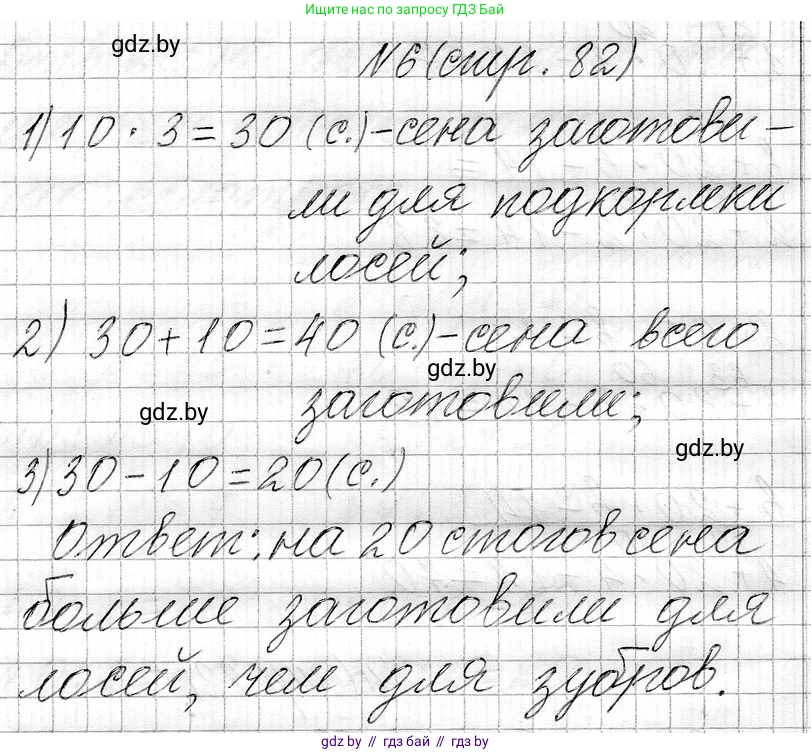 Ищите нас по запросу ГДЗ Бай
gdz.by
№6 (стр. 82)
1) 10 · 3 = 30 (с.) – сена заготови –
ли для подкормки
лосей;
2) 30 + 10 = 40 (с.) – сена всего
gdz.by
заготовили;
gdz.by
gdz.by
3) 30 – 10 = 20 (с.)
Ответ: на 20 стогов сена
больше заготовили для
лосей, чем для зубров.
gdz.by // гдз бай // гдз by